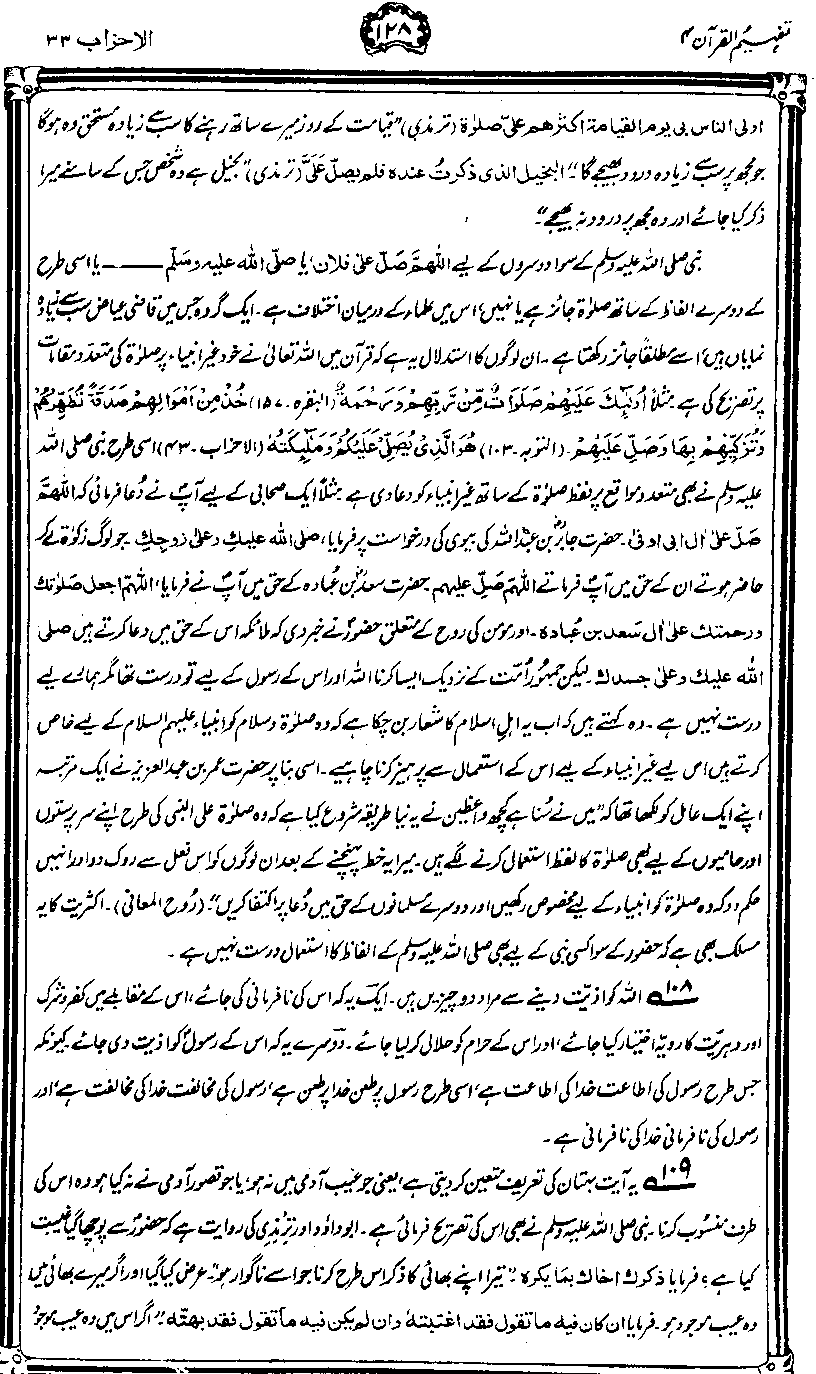 تفہیم القرآن ۴
۱۲۸
الاحزاب ۳۳
اولی الناس بی یوم القیامة اکثرھم علیّ صلوٰة (ترمذی) ”قیامت کے روز میرے ساتھ رہنے کا سب سے زیادہ مستحق وہ ہوگا
جو مجھ پر سب سے زیادہ درود بھیجے گا“۔ البخیل الذی ذکرتُ عندہ فلم یصلّ عَلَیَّ (ترمذی) ”بخیل ہے وہ شخص جس کے سامنے میرا
ذکر کیا جائے اور وہ مجھ پر درود نہ بھیجے“۔
نبی صلی اللہ علیہ وسلم کے سوا دوسروں کے لیے اللّٰھمّ صَلّ علیٰ فلان‘ یا صلّی اللہ علیہ وسَلّم ——— یا اسی طرح
کے دوسرے الفاظ کے ساتھ صلوٰۃ جائز ہے یا نہیں‘ اس میں علماء کے درمیان اختلاف ہے۔ ایک گروہ جس میں قاضی عیاض سب سے زیادہ
نمایاں ہیں‘ اسے مطلقاً جائز رکھتا ہے۔ ان لوگوں کا استدلال یہ ہے کہ قرآن میں اللہ تعالیٰ نے خود غیر انبیاء پر صلوٰۃ کی متعدد مقامات
پر تصریح کی ہے مثلاً اُولٰٓئِکَ عَلَیْھِمْ صَلَوَاتٌ مِّنْ رَّبِّھِمْ وَرَحْمَةٌ (البقرہ۔ ۱۵۷) خُذْ مِنْ اَمْوَالِھِمْ صَدَقَةً تُطَھِّرُھُمْ
وَتُزَکِّیْھِمْ بِھَا وَصَلِّ عَلَیْھِمْ۔ (التوبہ۔ ۱۰۳) ھُوَ الَّذِیْ یُصَلِّیْ عَلَیْکُمْ وَمَلٰٓئِکَتُہٗ (الاحزاب۔ ۴۳) اسی طرح نبی صلی اللہ
علیہ وسلم نے بھی متعدد مواقع پر لفظ صلوٰۃ کے ساتھ غیر انبیاء کو دعا دی ہے مثلاً ایک صحابی کے لیے آپؐ نے دُعا فرمائی کہ اللّٰھمّ
صَلّ علیٰ اٰل ابی اوفیٰ۔ حضرت جابرؓ بن عبداللہ کی بیوی کی درخواست پر فرمایا‘ صلی اللہ علیکِ وعلیٰ زوجکِ۔ جو لوگ زکوٰۃ لے کر
حاضر ہوتے ان کے حق میں آپؐ فرماتے اللّٰھمّ صَلّ علیھم۔ حضرت سعدؓ بن عبادہ کے حق میں آپؐ نے فرمایا‘ اللّٰھمّ اجعل صلوٰتک
ورحمتک علیٰ اٰل سَعد بن عُبادہ۔ اور مومن کی روح کے متعلق حضورؐ نے خبر دی کہ ملائکہ اس کے حق میں دعا کرتے ہیں صلی
اللہ علیک وعلیٰ جسدک۔ لیکن جمہُورِ اُمّت کے نزدیک ایسا کرنا اللہ اور اس کے رسول کے لیے تو درست تھا مگر ہمارے لیے
درست نہیں ہے۔ وہ کہتے ہیں کہ اب یہ اہلِ اسلام کا شعار بن چکا ہے کہ وہ صلوٰۃ و سلام کو انبیاء علیہم السلام کے لیے خاص
کرتے ہیں‘ اس لیے غیر انبیاء کے لیے اس کے استعمال سے پرہیز کرنا چاہیے۔ اسی بنا پر حضرت عمر بن عبدالعزیز نے ایک مرتبہ
اپنے ایک عامل کو لکھا تھا کہ ”میں نے سُنا ہے کچھ واعظین نے یہ نیا طریقہ شروع کیا ہے کہ وہ صلوٰۃ علی النبی کی طرح اپنے سرپرستوں
اور حامیوں کے لیے بھی صلوٰۃ کا لفظ استعمال کرنے لگے ہیں۔ میرا یہ خط پہنچنے کے بعد ان لوگوں کو اس فعل سے روک دو اور انہیں
حکم دو کہ وہ صلوٰۃ کو انبیاء کے لیے مخصوص رکھیں اور دوسرے مسلمانوں کے حق میں دُعا پر اکتفا کریں“۔ (رُوح المعانی)۔ اکثریت کا یہ
مسلک بھی ہے کہ حضور کے سوا کسی نبی کے لیے بھی صلی اللہ علیہ وسلم کے الفاظ کا استعمال درست نہیں ہے۔
۱۰۸ اللہ کو اذیّت دینے سے مراد دو چیزیں ہیں۔ ایک یہ کہ اس کی نافرمانی کی جائے‘ اس کے مقابلے میں کفر و شرک
اور دہریّت کا رویہّ اختیار کیا جائے‘ اور اس کے حرام کو حلال کر لیا جائے۔ دوسرے یہ کہ اس کے رسولؐ کو اذیت دی جائے‘ کیونکہ
جس طرح رسول کی اطاعت خدا کی اطاعت ہے‘ اسی طرح رسول پر طعن خدا پر طعن ہے‘ رسول کی مخالفت خدا کی مخالفت ہے‘ اور
رسول کی نافرمانی خدا کی نافرمانی ہے۔
۱۰۹ یہ آیت بہتان کی تعریف متعین کر دیتی ہے‘ یعنی جو عیب آدمی میں نہ ہو‘ یا جو قصور آدمی نے نہ کیا ہو وہ اس کی
طرف منسُوب کرنا۔ نبی صلی اللہ علیہ وسلم نے بھی اس کی تصریح فرمائی ہے۔ ابو داؤد اور ترمذی کی روایت ہے کہ حضورؐ سے پوچھا گیا غیبت
کیا ہے؟ فرمایا ذکرک اخاک بما یکرہ۔ ”تیرا اپنے بھائی کا ذکر اس طرح کرنا جو اسے ناگوار ہو“۔ عرض کیا گیا اور اگر میرے بھائی میں
وہ عیب موجود ہو۔ فرمایا ان کان فیہ ما تقول فقد اغتبتہٗ وان لم یکن فیہ ما تقول فقد بھتّہ۔ ”اگر اس میں وہ عیب موجود